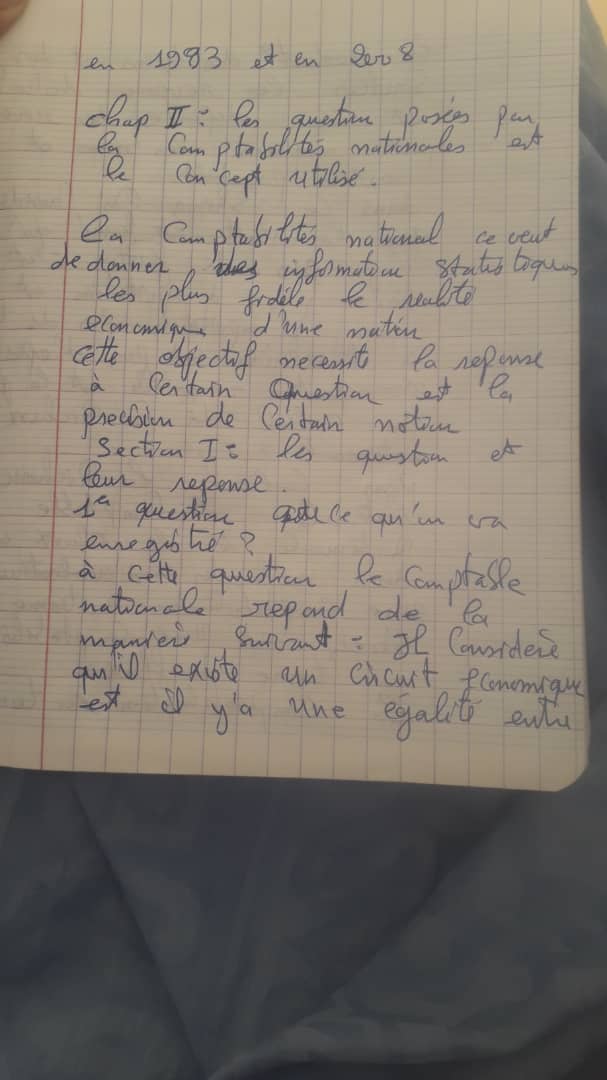 en 1993 et en 2008
chap II : les question posées par
la Comptabilités nationales est
le Concept utilisé.
la Comptabilités national ce veut
de donner des information statistiques
les plus fidéle le realité
economique d'une nation
cette objectif necessite la reponse
à Certain Question est la
precision de Certain notion
Section I : les question et
leur reponse.
1e question ce qu'on va
enregistré ?
à cette question le Comptable
nationale repond de la
maniere suivant : Il Considere
qu'il existe un circuit economique
est il y'a une égalité entre